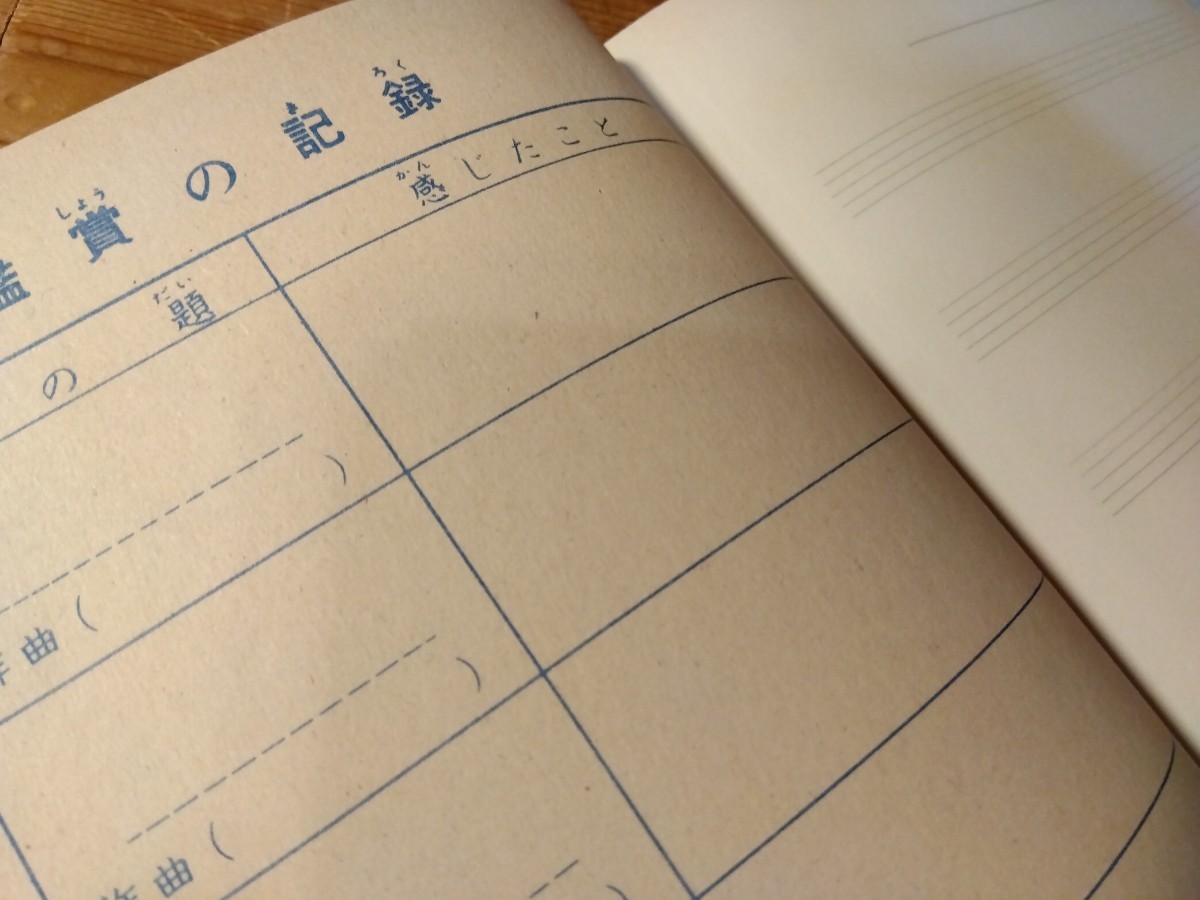 しょう ろく
鑑賞の記録
だい
の題
かん
感じたこと
作曲( )
作曲( )
)